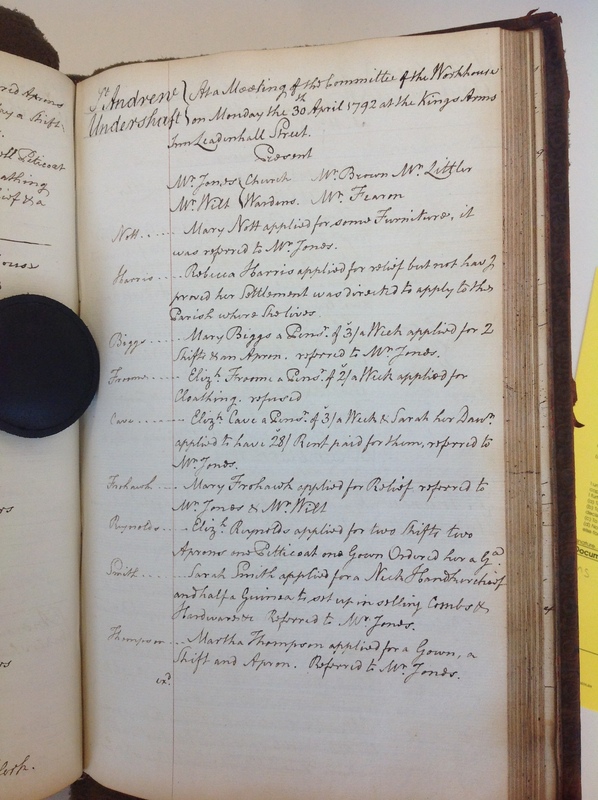 St. Andrew } At a Meeting of the Committee of the Workhouse
Undershaft } on Monday the 30th April 1792 at the Kings Arms
Inn Leadenhall Street.
Present
Mr. Jones { Church Mr. Brown Mr. Littler
Mr. Wilt { Wardens. Mr. Fearon
Nott..... Mary Nott applied for some Furniture, it
was referred to Mr. Jones.
Harris... Rebecca Harris applied for relief but not havg
proved her Settlement was directed to apply to the
Parish where She lives
Biggs..... Mary Biggs a Pensr. of 3/ a Week applied for 2
Shifts & an Apron. referred to Mr. Jones.
Froome.... Elizh. Froome a Pensr. of 2/ a Week applied for
Cloathing. refused
Cave....... Elizh. Cave a Pensr. of 3/ a Week & Sarah her Daur.
applied to have 28/ Rent paid for them, referred to
Mr. Jones.
Frohawk.... Mary Frohawk applied for Relief referred to
Mr. Jones & Mr. Wilt
Reynolds... Elizh. Raynolds applied for two Shifts two
Aprons one Petticoat one Gown Ordered her a Gn.
Smith..... Sarah Smith applied for a Neck Handkerchief
and half a Guinea to set up in selling Combs &
Hardware &c Referred to Mr. Jones.
Thompson... Martha Thompson applied for a Gown, a
Shift and Apron. Referred to Mr. Jones.
exd.